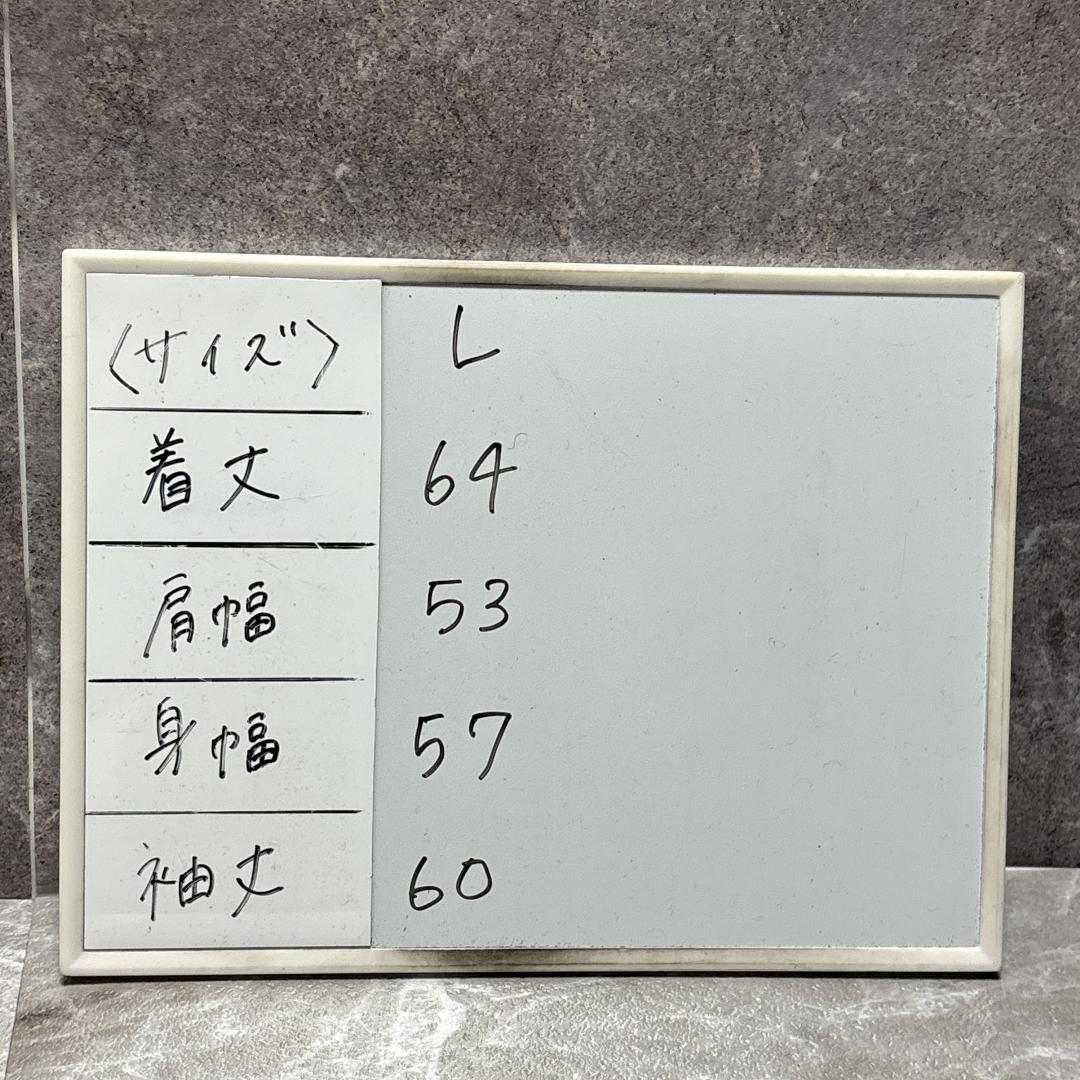 〈サイズ〉 L
着丈 64
肩幅 53
身幅 57
袖丈 60